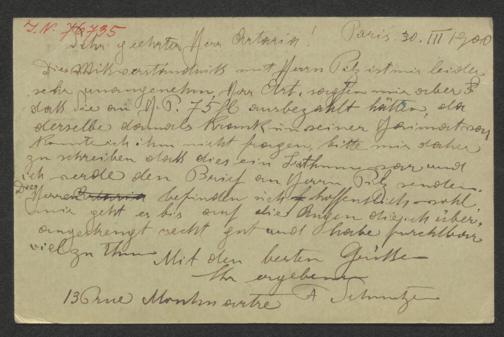 I.N. 76735
Paris 30. III 1900
Sehr geehrter Herr Artaria!
Dies Mißverständniß mit Herrn Pilz ist mir leider
sehr unangenehm, Herr Ost. sagten mir aber
daß sie an H. P. 75 fl ausbezahlt hätten, da
derselbe damals krank in seiner Heimat war
konnte ich ihn nicht fragen, bitte mir daher
zu schreiben daß dies ein Irrthum war und
ich werde den Brief an Herrn Pilz senden.
Herren befinden sich hoffentlich wohl,
mir geht es bis auf die Augen die ich über-
angestrengt recht gut und habe furchtbar
viel zu thun
Mit den besten Grüßen
Ihr ergebener
13 rue Montmartre A Schmutzer